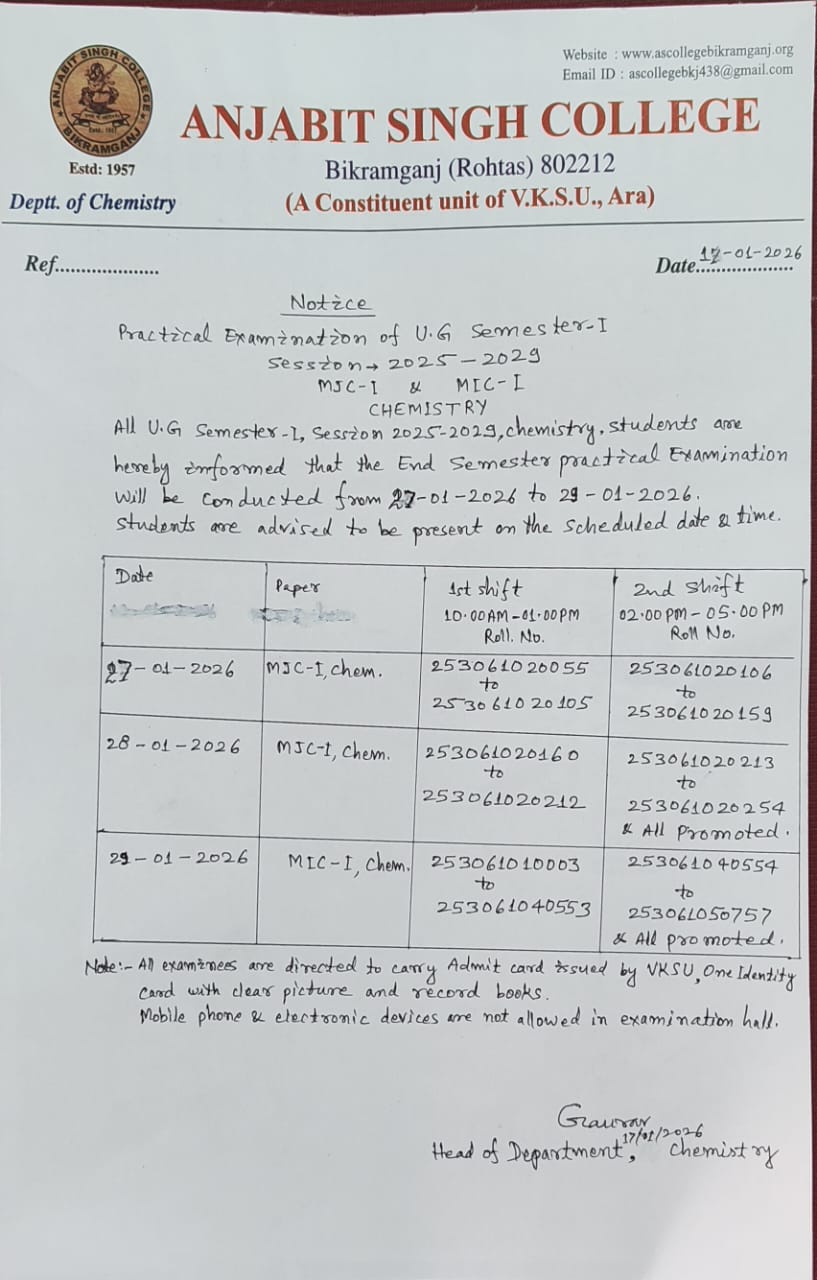 Website : www.ascollegebikramganj.org
Email ID : ascollegebkj438@gmail.com
ANJABIT SINGH COLLEGE
BIKRAMGANJ
Estd: 1957
ANJABIT SINGH COLLEGE
Bikramganj (Rohtas) 802212
Deptt. of Chemistry
(A Constituent unit of V.K.S.U., Ara)
Ref....................
Date 17-01-2026
Notice
Practical Examination of U.G Semester-I
Session → 2025-2029
MJC-I & MIC-I
CHEMISTRY
All U.G Semester-I, Session 2025-2029, chemistry, students are
hereby informed that the End Semester practical Examination
will be conducted from 27-01-2026 to 29-01-2026.
Students are advised to be present on the scheduled date & time.
Date Paper 1st shift 2nd shift
10.00AM-01.00PM 02.00 PM-05.00 PM
Roll. No. Roll No.
27-01-2026 MJC-I, Chem. 253061020055 253061020106
to to
253061020105 253061020159
28-01-2026 MJC-I, Chem. 253061020160 253061020213
to to
253061020212 253061020254
& All Promoted.
29-01-2026 MIC-I, Chem. 253061010003 253061040554
to to
253061040553 253061050757
& All promoted.
Note:- All examinees are directed to carry Admit card issued by VKSU, One Identity
Card with clear picture and record books.
Mobile phone & electronic devices are not allowed in examination hall.
Gaurav
17/01/2026
Head of Department, Chemistry